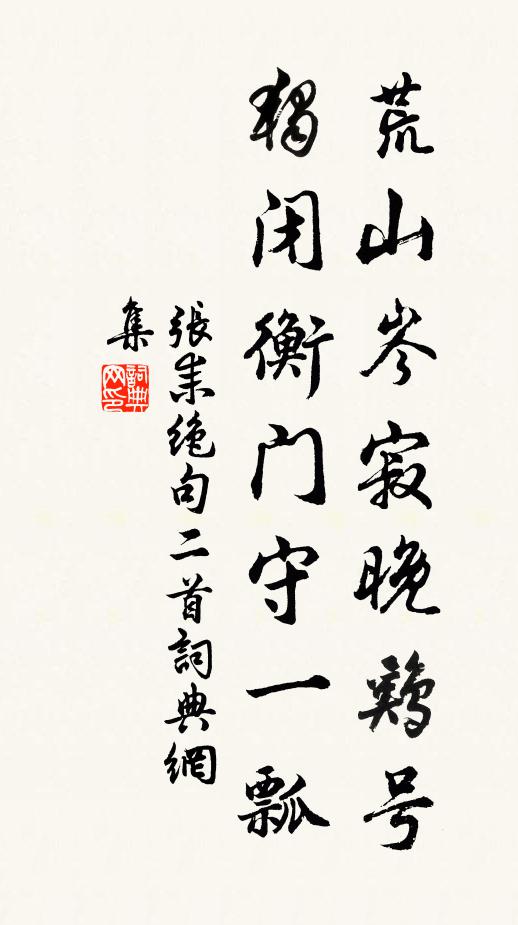 荒山岑寂晚鷄号
獨闭衡门守一瓢
張耒絶句二首詞典網
集
詞典网印